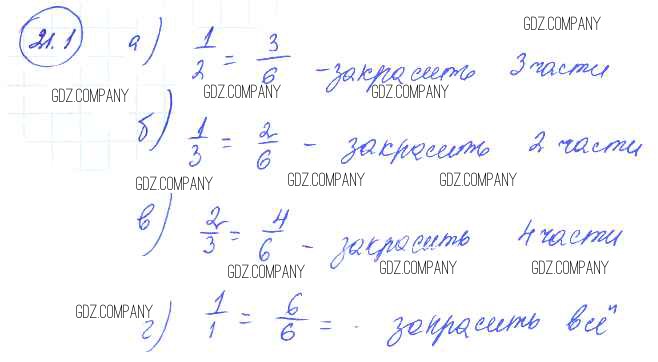 GDZ.COMPANY
21.1 а) 1/2 = 3/6 - закрасить 3 части
GDZ.COMPANY GDZ.COMPANY GDZ.COMPANY
б) 1/3 = 2/6 - закрасить 2 части
GDZ.COMPANY GDZ.COMPANY GDZ.COMPANY
в) 2/3 = 4/6 - закрасить 4 части
GDZ.COMPANY GDZ.COMPANY GDZ.COMPANY
GDZ.COMPANY
г) 1/1 = 6/6 = . закрасить всё